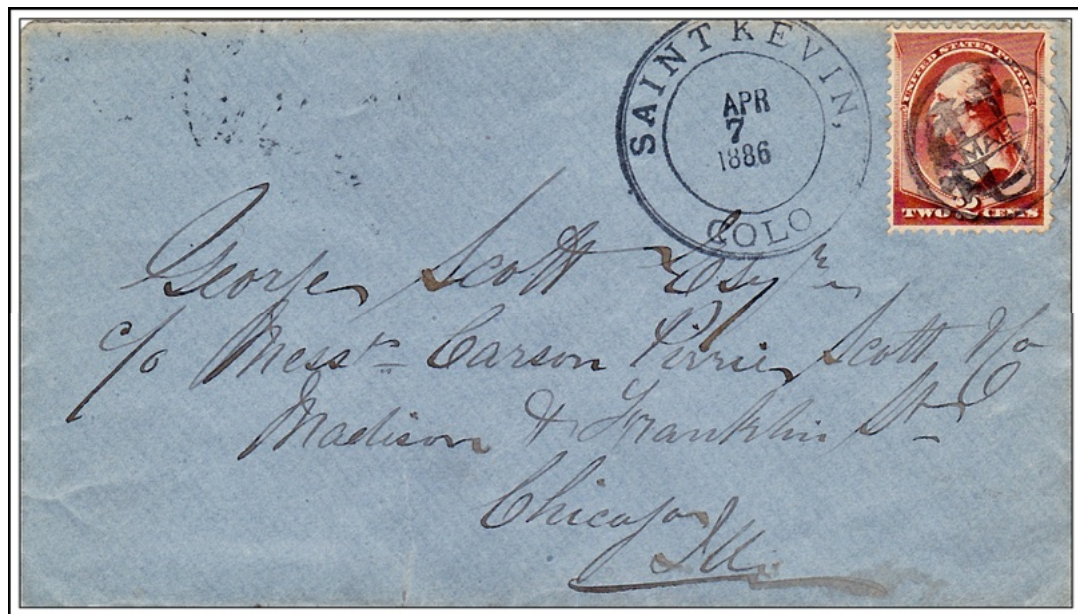 SAINT KEVIN,
APR
7
1886
COLO
UNITED STATES POSTAGE
TWO 2 CENTS
George Scott Esqr
c/o Messrs Carson Pirie, Scott, &/o
Madison & Franklin Sts
Chicago
Ill.